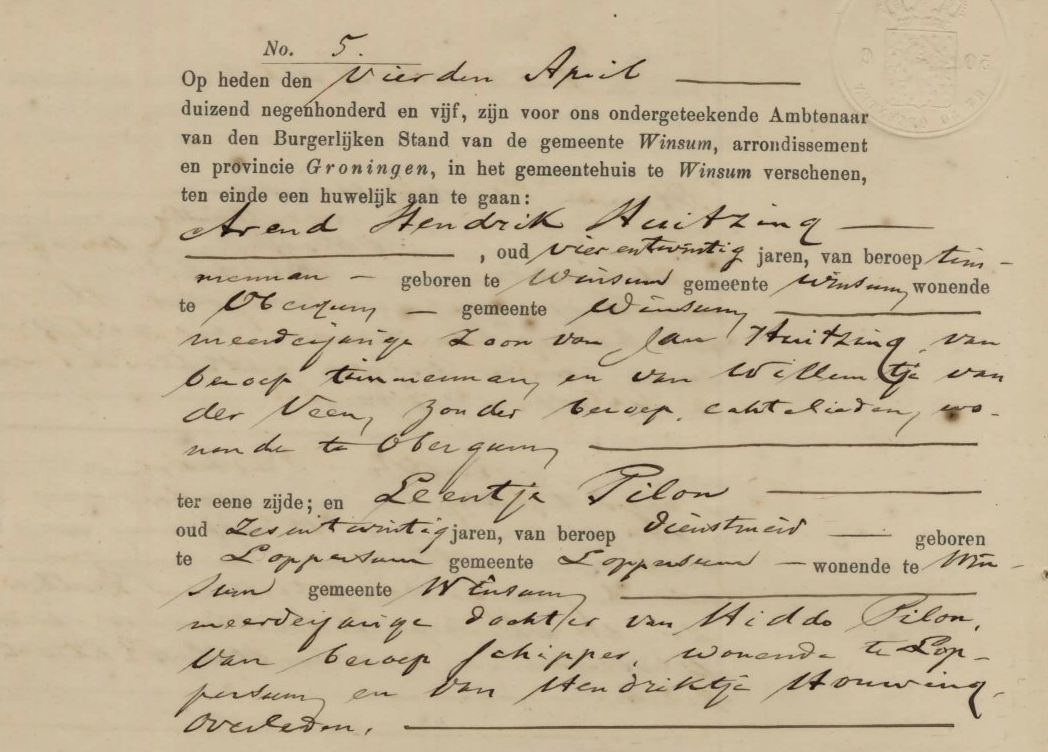 No. 5.
Op heden den vierden April
duizend negenhonderd en vijf, zijn voor ons ondergeteekende Ambtenaar
van den Burgerlijken Stand van de gemeente Winsum, arrondissement
en provincie Groningen, in het gemeentehuis te Winsum verschenen,
ten einde een huwelijk aan te gaan:
Arend Hendrik Huitzing
, oud vierentwintig jaren, van beroep tim-
merman geboren te Winsum gemeente Winsum, wonende
te Obergum gemeente Winsum,
meerderjarige zoon van Jan Huitzing, van
beroep timmerman, en van Willemtje van
der Veen, zonder beroep, echtelieden, wo-
nende te Obergum,
ter eene zijde; en Leentje Pilon
oud zesentwintig jaren, van beroep dienstmeid geboren
te Loppersum gemeente Loppersum wonende te Win-
sum gemeente Winsum,
meerderjarige dochter van Hiddo Pilon,
van beroep schipper, wonende te Lop-
persum, en van Hendriktje Houwing,
overleden.